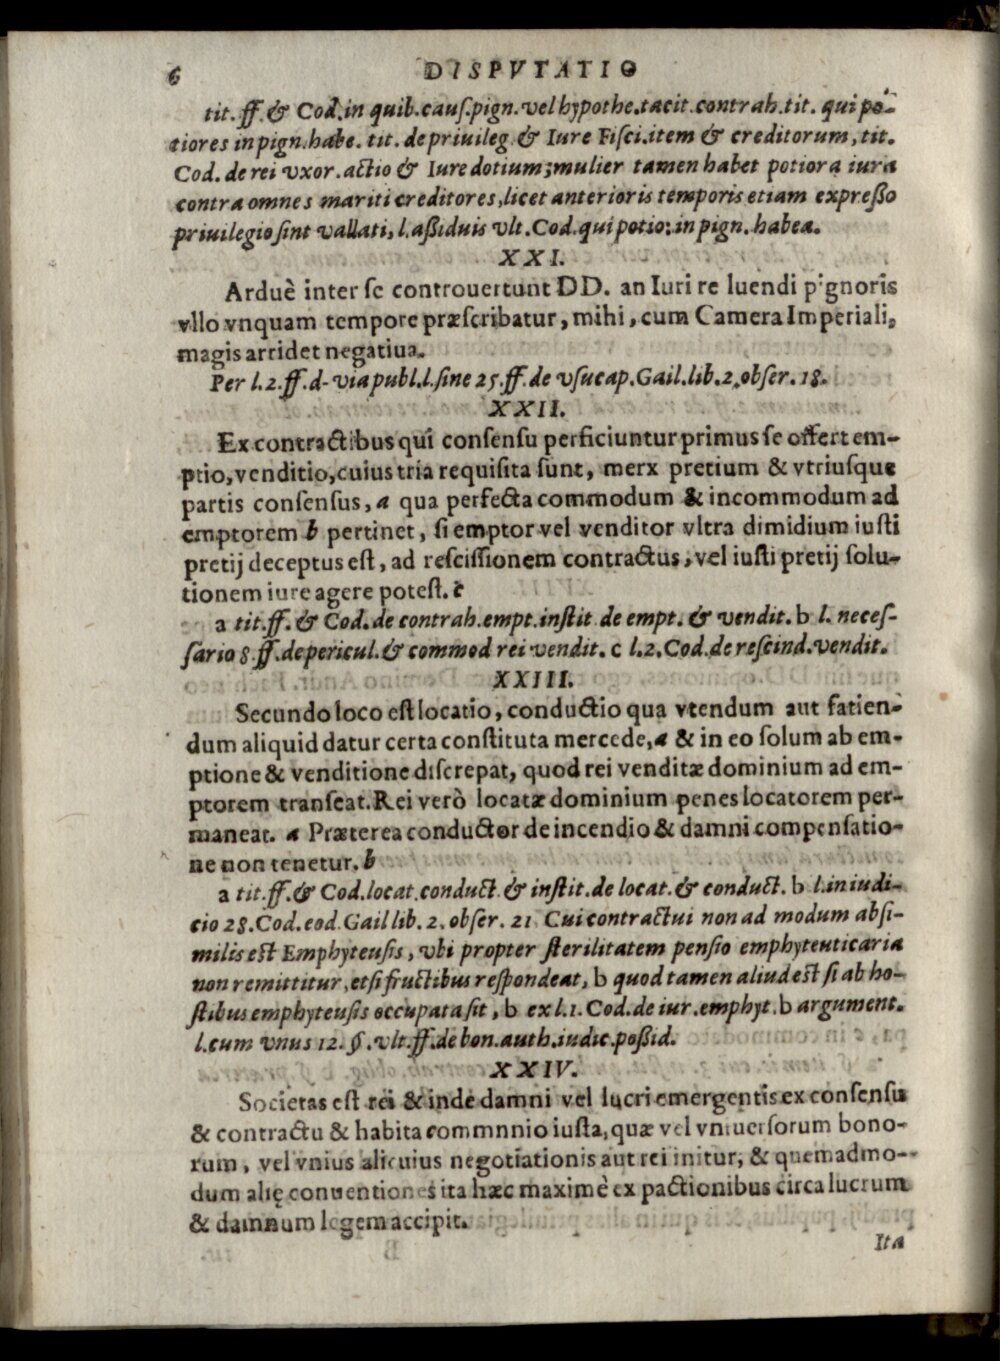 6 DISPVTATIO
tit. ff. & Cod. in quib. cauſ. pign. vel hypothe. tacit. contrah. tit. qui po-
tiores in pign. habe. tit. de priuileg & Iure Fiſci. item & creditorum, tit.
Cod. de rei vxor. actio & Iure dotium; mulier tamen habet potiora iura
contra omnes mariti creditores, licet anterioris temporis etiam expreßo
priuilegio ſint vallati, l. aßiduis vlt. Cod. qui potio: in pign. habea.
XXI.
Arduè inter ſe controuertunt DD. an Iuri re luendi pignoris
vllo vnquam tempore præſcribatur, mihi, cum Camera Imperiali,
magis arridet negatiua.
Per l. 2. ff. d- via publ. l. ſine 25. ff. de vſucap. Gail. lib. 2. obſer. 18.
XXII.
Ex contractibus qui conſenſu perficiuntur primus ſe offert em-
ptio, venditio, cuius tria requiſita ſunt, merx pretium & vtriuſque
partis conſenſus, a qua perfecta commodum & incommodum ad
emptorem b pertinet, ſi emptor vel venditor vltra dimidium iuſti
pretij deceptus eſt, ad reſciſſionem contractus, vel iuſti pretij ſolu-
tionem iure agere poteſt. c
a tit. ff. & Cod. de contrah. empt. inſtit. de empt. & vendit. b l. neceſ-
ſario 8. ff. de pericul. & commod rei vendit. c l. 2. Cod. de reſcind. vendit.
XXIII.
Secundo loco eſt locatio, conductio qua vtendum aut fatien-
dum aliquid datur certa conſtituta mercede, a & in eo ſolum ab em-
ptione & venditione diſcrepat, quod rei venditæ dominium ad em-
ptorem tranſeat. Rei verò locatæ dominium penes locatorem per-
maneat. a Præterea conductor de incendio & damni compenſatio-
ne non tenetur. b
a tit. ff. & Cod. locat. conduct. & inſtit. de locat. & conduct. b l. in iudi-
cio 28. Cod. eod. Gail lib. 2. obſer. 21 Cui contractui non ad modum abſi-
milis est Emphyteuſis, vbi propter ſterilitatem penſio emphyteuticaria
non remittitur, etſi fructibus reſpondeat, b quod tamen aliud est ſi ab ho-
ſtibus emphyteuſis occupata ſit, b ex l. 1. Cod. de iur. emphyt. b argument.
l. cum vnus 12. §. vlt. ff. de bon. auth. iudic. poßid.
XXIV.
Societas eſt rei & inde damni vel lucri emergentis ex conſenſu
& contractu & habita commnnio iuſta, quæ vel vniuerſorum bono-
rum, vel vnius alicuius negotiationis aut rei initur, & quemadmo-
dum alię conuentiones ita hæc maximè ex pactionibus circa lucrum
& damnum legem accipit.
Ita